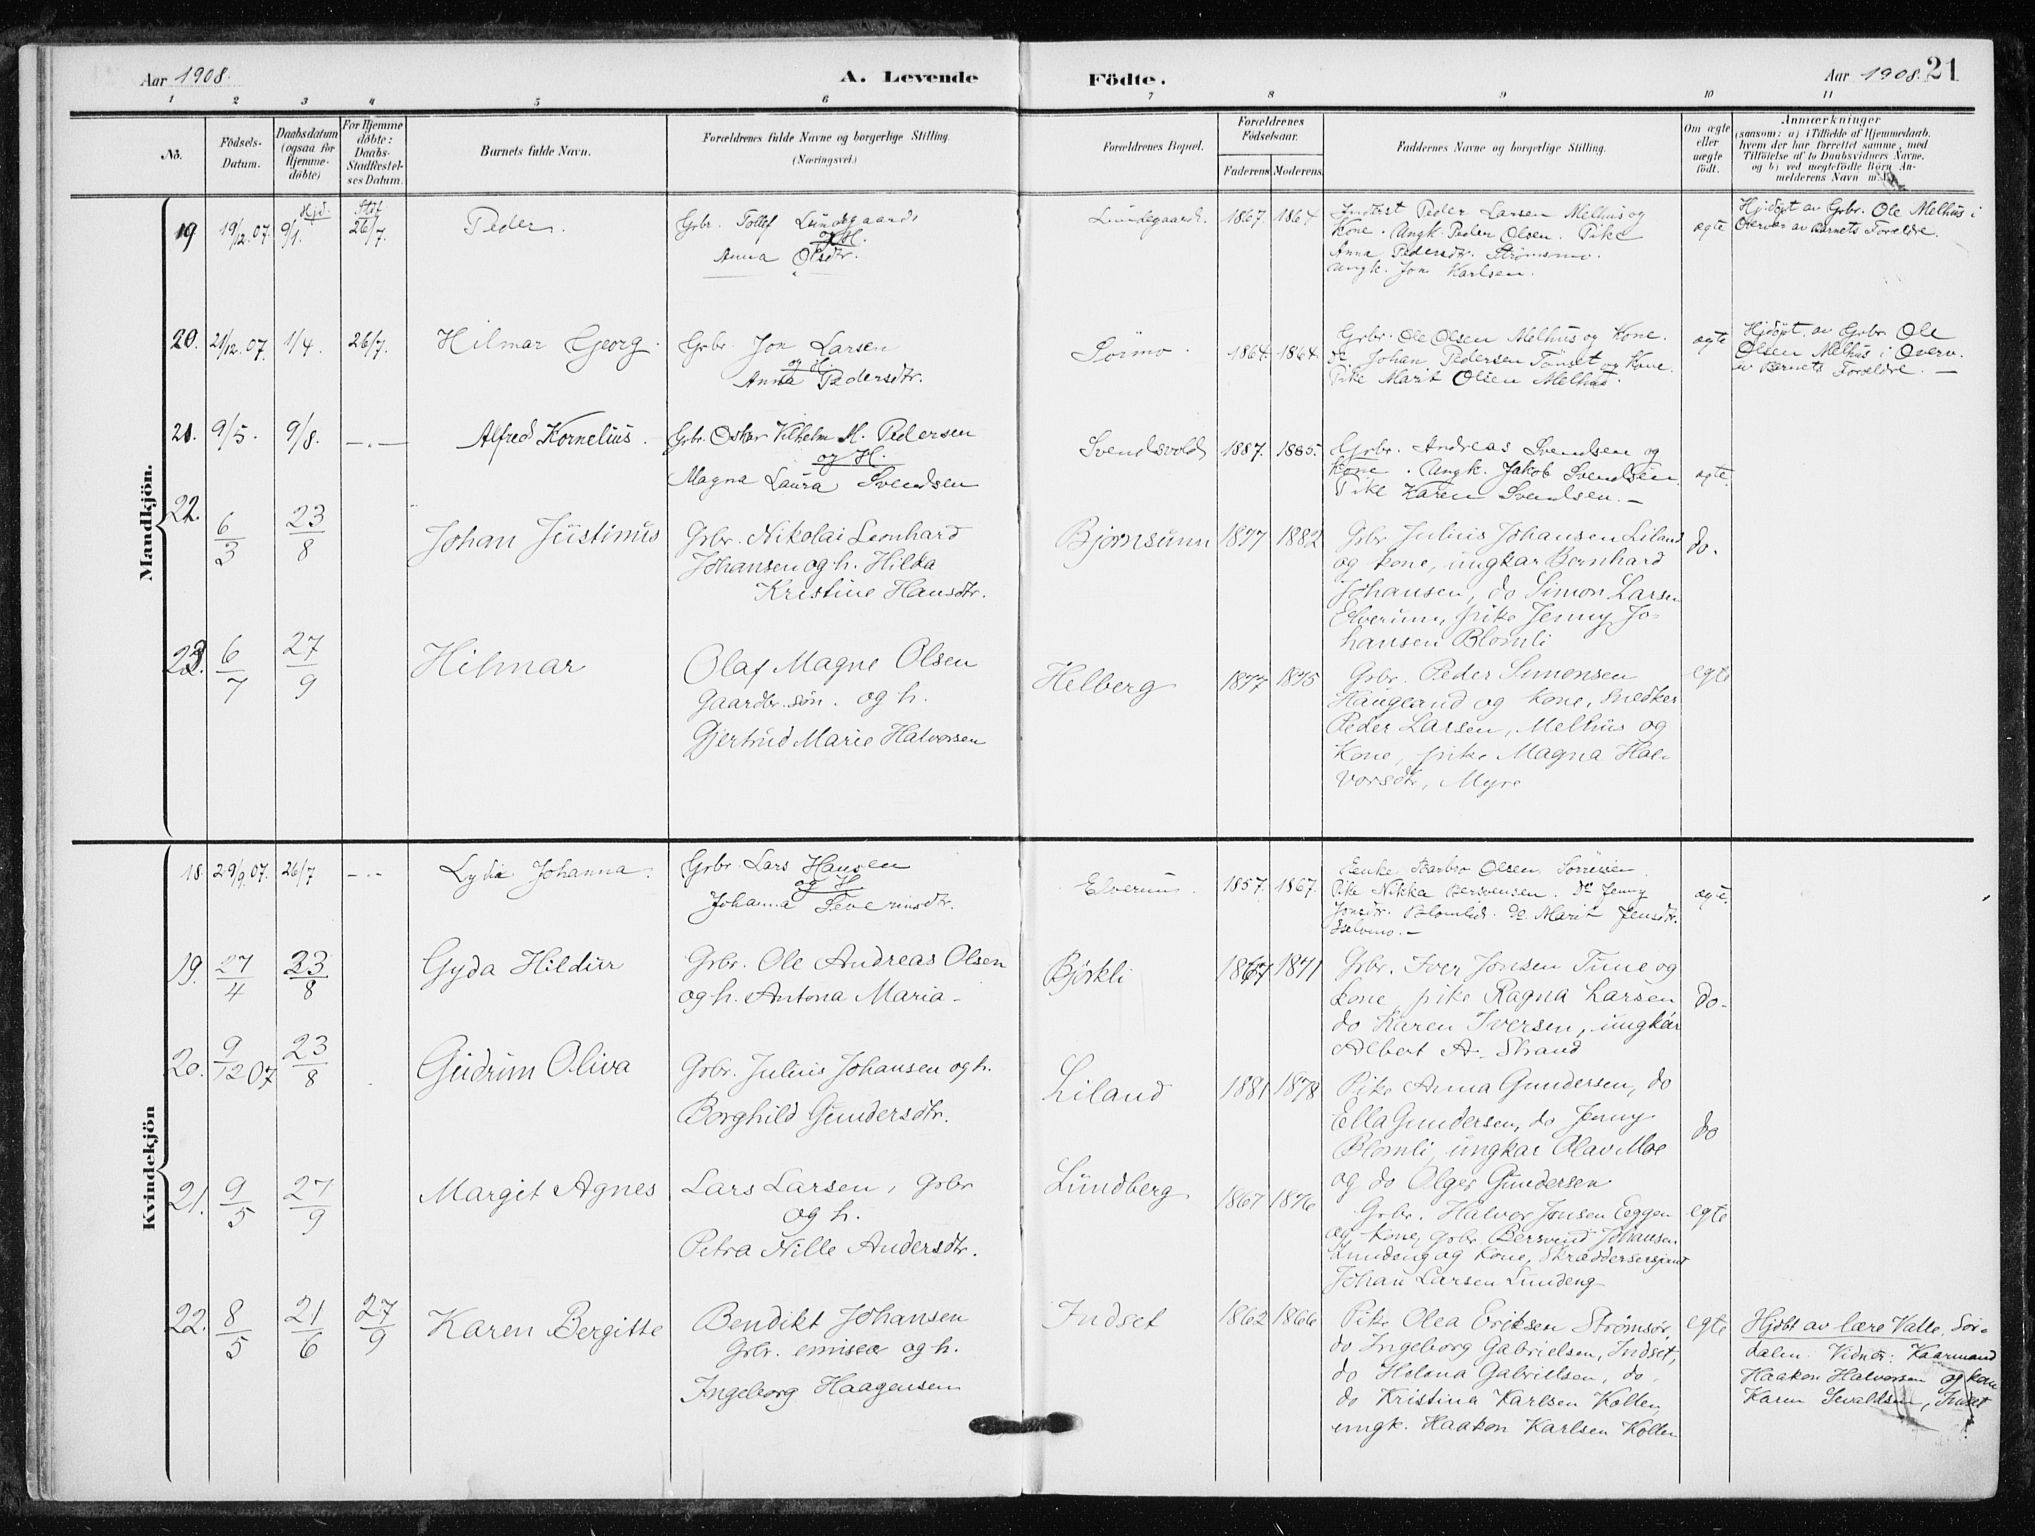 Aar 1908.
A. Levende
Födte.
Aar 1908. 21
1 2 3 4 5 6 7 8 9 10 11
No.
Födsels-
Datum.
Daabsdatum
(ogsaa for
Hjemme-
döbte)
For Hjemme
döbte:
Daabs-
Stadfæstel-
ses Datum.
Barnets fulde Navn.
Forældrenes fulde Navne og borgerlige Stilling.
(Næringsvei.)
Forældrenes Bopæl.
Forældrenes
Födselsaar.
Faderens Moderens
Faddernes Navne og borgerlige Stilling.
Om ægte
eller
uægte
födt.
Anmærkninger
(saasom: a) i Tilfælde af Hjemmedaab,
hvem der har forrettet samme, med
Tilföielse af to Daabsvidners Navne,
og b) ved uegtefödte Börn An-
melderens Navn m.V.
Mandkjön.
19 19/12.07. Hjd. 9/1. Stdf. 26/7.
Peder.
Grbr. Tollef Lundegaard
og H.
Anna Olsdtr.
Lundegaard. 1867. 1864.
Indtrst Peder Larsen Melhus og
Kone. Ungk. Peder Olsen. Pike
Anna Pedersdtr. Strømsmo.
Ungk. Jon Karlsen.
ægte
Hjdöpt av Grbr. Ole Melhus i
Overvær av Barnets Forældre.
20. 21/12.07. 1/4. 26/7.
Hilmar Georg.
Grbr. Jon Larsen
og H.
Anna Pedersdtr.
Sörmo. 1864. 1864.
Grbr. Ole Olsen Melhus og Kone.
do Johan Pedersen Tönset og Kone.
Pike Marit Olsen Melhus.
ægte
Hjdöpt av Grbr. Ole
Olsen Melhus i Overv.
av Barnets Forældre. —
21. 9/5. 9/8. —.—
Alfred Kornelius.
Grbr. Oskar Vilhelm M. Pedersen
og H.
Magna Laura Svendsen
Svendsvold 1887. 1885.
Grbr. Andreas Svendsen og
Kone. Ungk. Jakob Svendsen.
Pike Karen Svendsen. —
ægte.
22. 6/3 23/8
Johan Justinus
Grbr. Nikolai Leonhard
Johansen og h. Hilda
Kristine Hansdtr.
Bjørnsunn 1877 1882
Grbr Julius Johansen Liland
og kone, ungkar Bernhard
Johansen, do Simon Larsen
Elverum, pike Jenny Jo-
hansen Blomli
do.
23. 6/7 27/9
Hilmar
Olaf Magne Olsen
Gaardbr. søn. og h.
Gjertrud Marie Halvorsen
Helberg 1877 1875
Grbr. Peder Simonsen
Haugland og kone, snedker
Peder Larsen, Melhus og
kone, pike Magna Hal-
vorsdtr, Myre
egte
Kvindekjön
18. 29/9.07. 26/7 —.—
Lydia Johanna.
Grbr. Lars Hansen
og H
Johanna Severinsdtr.
Elverum. 1857. 1867.
Enke Barbro Olsen Sörreisen.
Pike Nikka Bersvensen. Do Jenny
Jonsdtr. Blomlid. do Marit Jensdtr.
ægte.
19. 27/4 23/8
Gyda Hildur
Grbr. Ole Andreas Olsen
og h. Antona Maria —
Björkli 1867 1871
Grbr. Iver Jonsen Tune og
kone, pike Ragna Larsen
do Karen Iversen, ungkar
Albert A. Strand
do.
20. 9/12 07 23/8
Gudrun Oliva
Grbr. Julius Johansen og h.
Borghild Gundersdtr.
Liland 1881 1878
Pike Anna Gundersen, do
Ella Gundersen, do Jenny
Blomli, ungkar Olav Moe
og do Olger Gundersen
do
21. 9/5 27/9
Margit Agnes
Lars Larsen, grbr
og h.
Petra Nille Andersdtr.
Lundberg. 1867 1876
Grbr. Halvor Jonsen Eggen
og kone, grbr. Bersvend Johansen
Lundeng og kone, Skræddersersjant
Johan Larsen Lundeng
egte
22. 8/5 21/6 27/9
Karen Bergitte
Bendikt Johansen
Grbr. emisær og h.
Ingeborg Haagensen
Indset 1862 1866
Pike Olea Eriksen Strømsör,
do Ingeborg Gabrielsen, Indset,
do Helena Gabrielsen, do,
do Kristina Karlsen Kollen,
ungk. Haakon Karlsen Kollen
egte
Hjdøbt av lære Valle, Sör-
dalen. Vidner: Kaarmand
Haakon Halvorsen og kone
Karen Sevaldsen, Indset